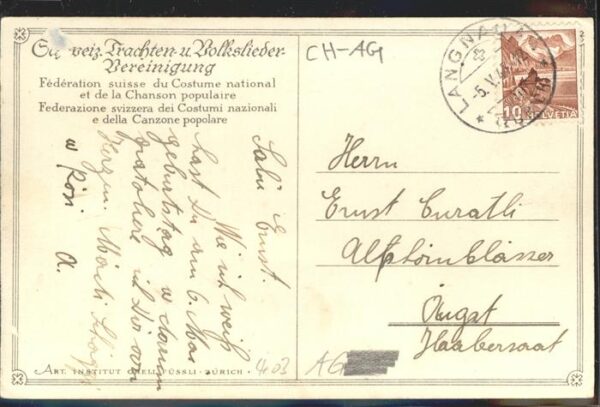 Schweiz. Trachten- u. Volkslieder-
Vereinigung
Fédération suisse du Costume national
et de la Chanson populaire
Federazione svizzera dei Costumi nazionali
e della Canzone popolare
CH-AG
LANGNAU
10 HELVETIA
Salü Ernst.
Wie ich weiß
hast Du am 6. Mai
geburtstag u darum
gratuliere ich Dir von
Herzen.
u Rösi
A.
Herrn
Ernst Curatli
Alphornbläser
Äugst
Haabersaat
4.03
AG
ART. INSTITUT ORELL FÜSSLI · ZÜRICH